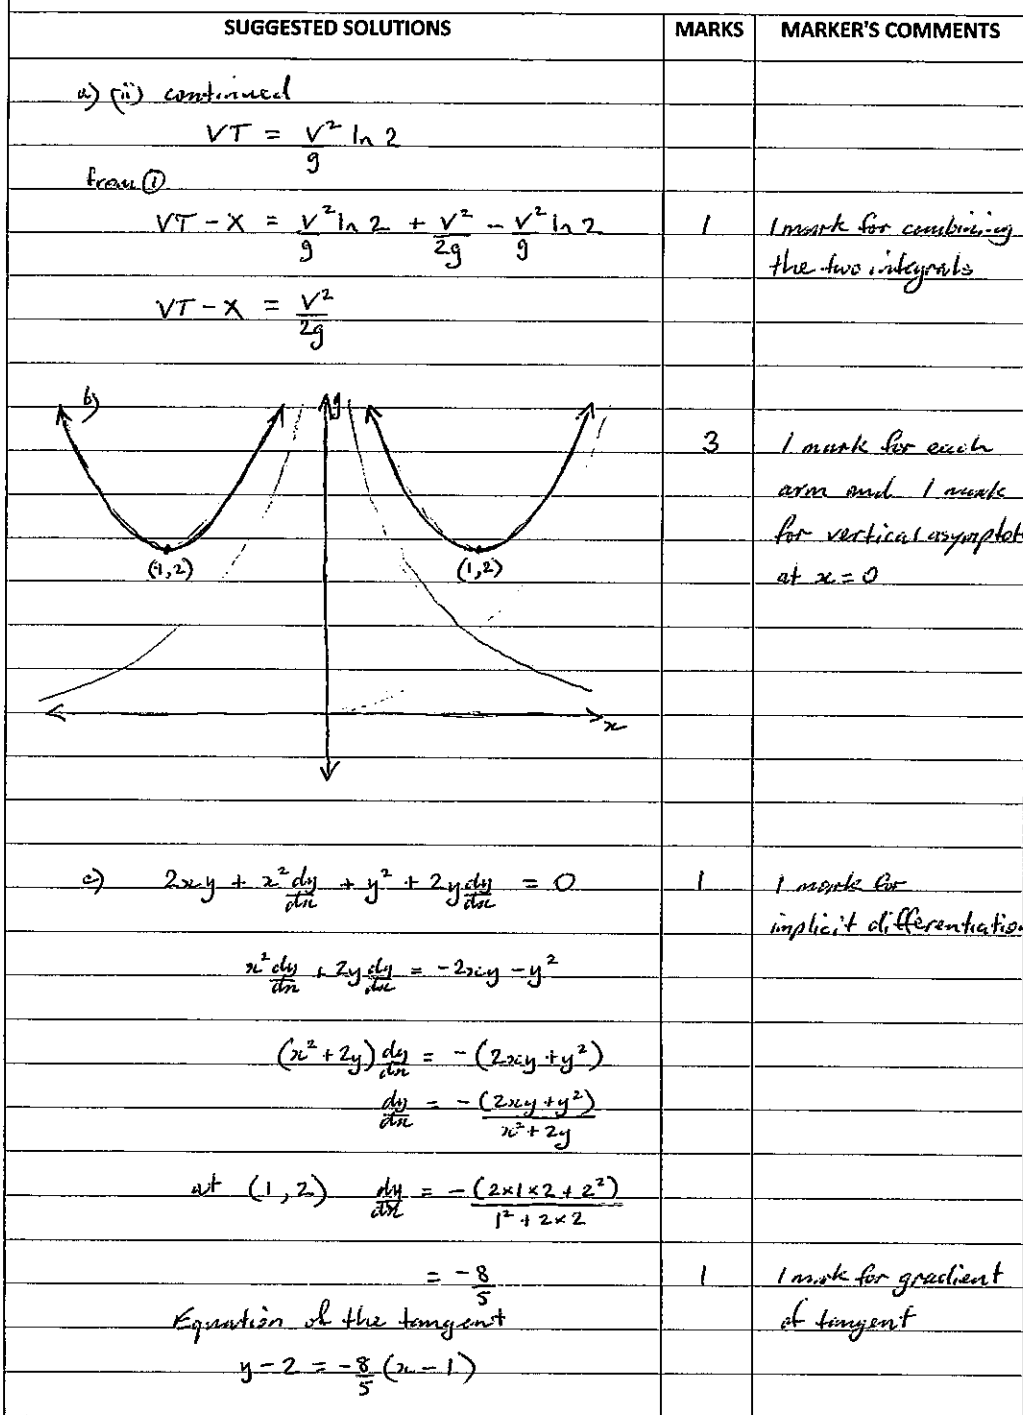 SUGGESTED SOLUTIONS MARKS MARKER'S COMMENTS
a) (ii) continued
VT = V²/g ln 2
from ①
VT - X = V²/g ln 2 + V²/2g - V²/g ln 2 1 1 mark for combining
the two integrals
VT - X = V²/2g
b) y
3 1 mark for each
arm and 1 mark
for vertical asymptot
at x = 0
(1,2) (1,2)
x
c) 2xy + x² dy/dx + y² + 2y dy/dx = 0 1 1 mark for
implicit differentiation
x² dy/dx + 2y dy/dx = -2xy - y²
(x² + 2y) dy/dx = -(2xy + y²)
dy/dx = -(2xy + y²)/(x² + 2y)
at (1, 2) dy/dx = -(2×1×2 + 2²)/(1² + 2×2)
= -8/5 1 1 mark for gradient
of tangent
Equation of the tangent
y - 2 = -8/5 (x - 1)